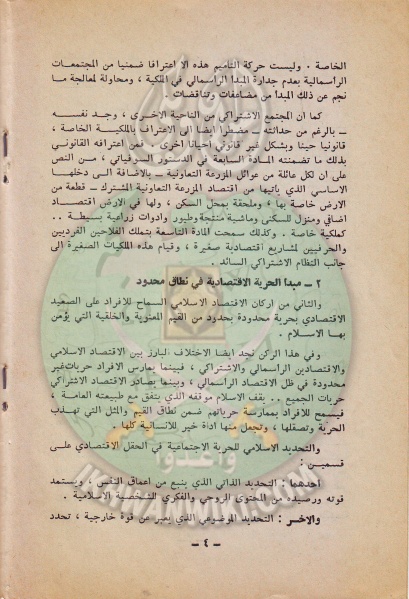 الخاصة . وليست حركة التاميم هذه الا اعترافا ضمنيا من المجتمعات
الرأسمالية بعدم جدارة المبدأ الرأسمالي في الملكية ، ومحاولة لمعالجة ما
نجم عن ذلك المبدأ من مضاعفات وتناقضات .
كما ان المجتمع الاشتراكي من الناحية الاخرى ، وجد نفسه
ـ بالرغم من حداثته ـ مضطرا ايضا الى الاعتراف بالملكية الخاصة ،
قانونيا حينا وبشكل غير قانوني احيانا اخرى . فمن اعترافه القانوني
بذلك ما تضمنته المادة السابعة في الدستور السوفياتي ، من النص
على ان لكل عائلة من عوائل المزرعة التعاونية ـ بالاضافة الى دخلها
الاساسي الذي ياتيها من اقتصاد المزرعة التعاونية المشترك ـ قطعة من
الارض خاصة بها ، وملحقة بمحل السكن ، ولها في الارض اقتصاد
اضافي ومنزل للسكنى وماشية منتجة وطيور وادوات زراعية بسيطة ..
كملكية خاصة . وكذلك سمحت المادة التاسعة بتملك الفلاحين الفرديين
والحرفيين لمشاريع اقتصادية صغيرة ، وقيام هذه الملكيات الصغيرة الى
جانب النظام الاشتراكي السائد .
٢ ـ مبدأ الحرية الاقتصادية في نطاق محدود
والثاني من اركان الاقتصاد الاسلامي السماح للافراد على الصعيد
الاقتصادي بحرية محدودة بحدود من القيم المعنوية والخلقية التي يؤمن
بها الاسلام .
وفي هذا الركن نجد ايضا الاختلاف البارز بين الاقتصاد الاسلامي
والاقتصادين الرأسمالي والاشتراكي ، فبينما يمارس الافراد حريات غير
محدودة في ظل الاقتصاد الرأسمالي ، وبينما يصادر الاقتصاد الاشتراكي
حريات الجميع .. يقف الاسلام موقفه الذي يتفق مع طبيعته العامة ،
فيسمح للافراد بممارسة حرياتهم ضمن نطاق القيم والمثل التي تهذب
الحرية وتصقلها ، وتجعل منها اداة خير للانسانية كلها .
والتحديد الاسلامي للحرية الاجتماعية في الحقل الاقتصادي على
قسمين :
احدهما : التحديد الذاتي الذي ينبع من اعماق النفس ، ويستمد
قوته ورصيده من المحتوى الروحي والفكري للشخصية الاسلامية .
والاخر : التحديد الموضوعي الذي يعبر عن قوة خارجية ، تحدد
ـ ٤ ـ
وأعدوا